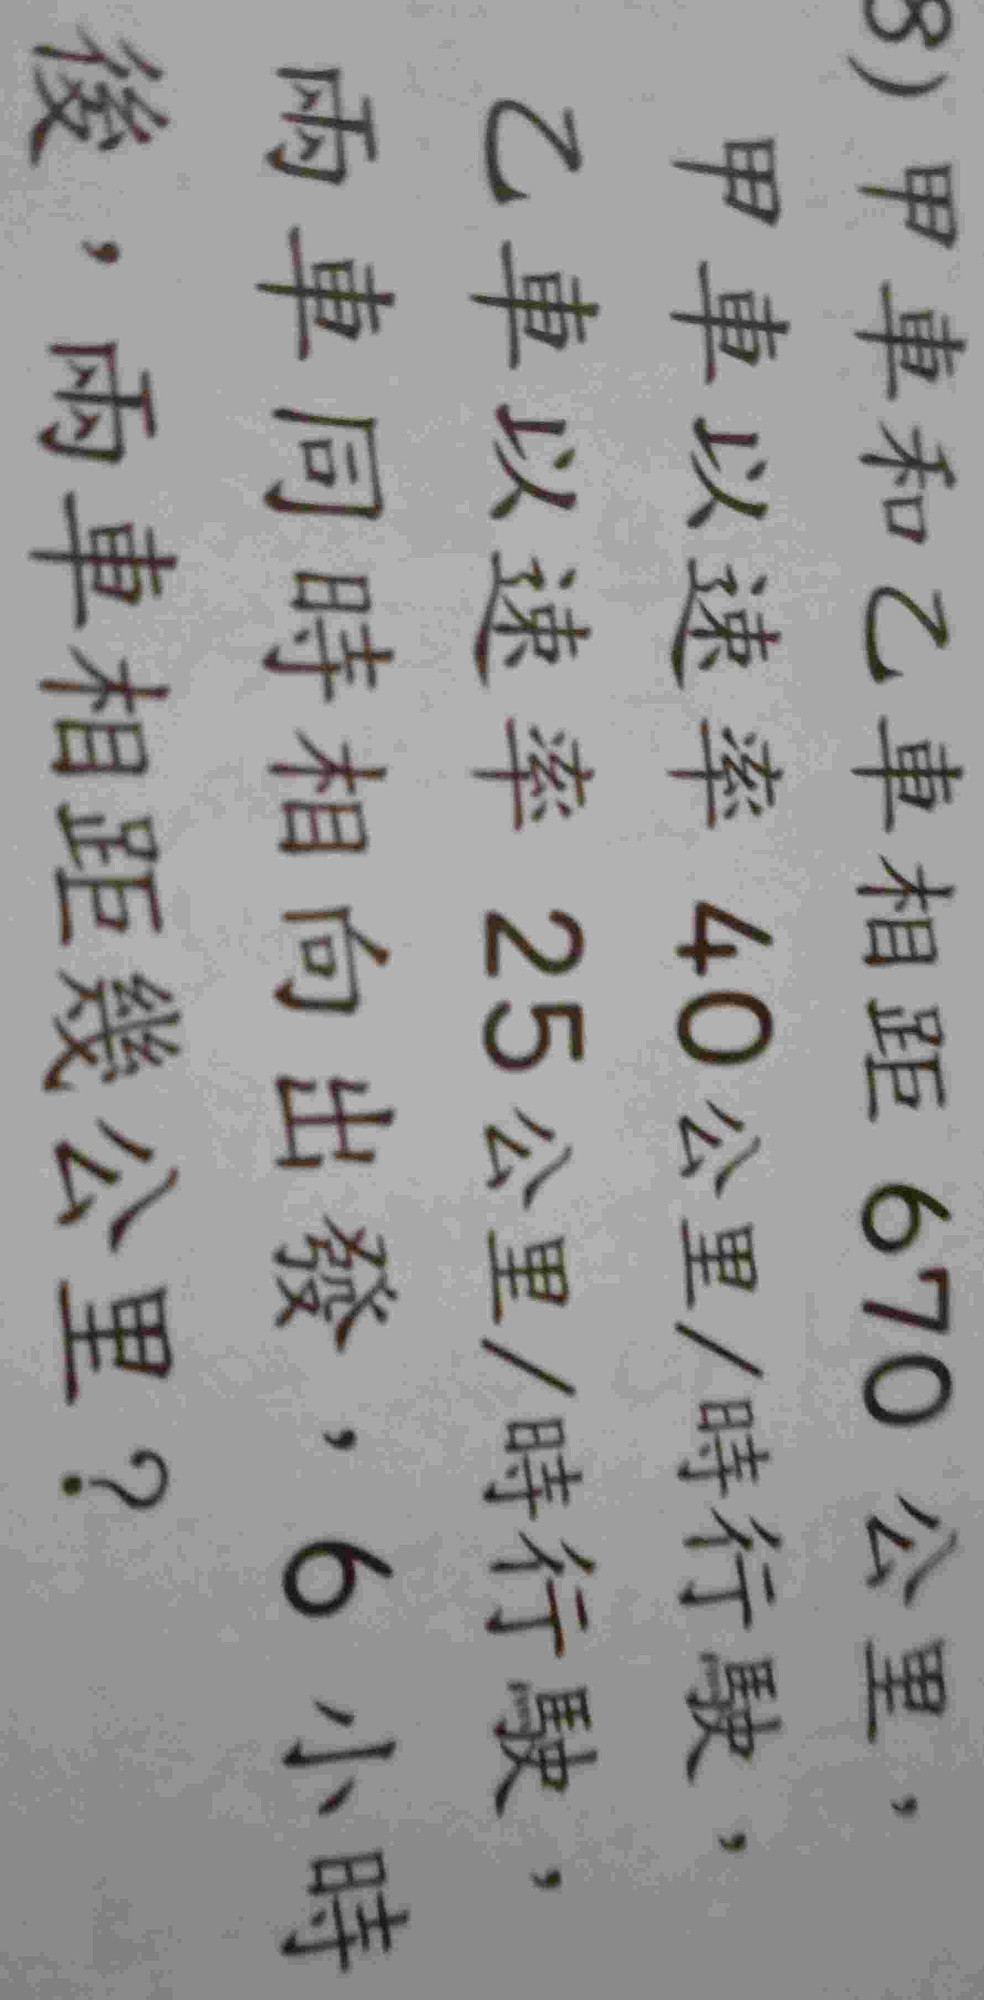 8) 甲車和乙車相距 670 公里，
甲車以速率 40公里/時行駛，
乙車以速率 25公里/時行駛，
兩車同時相向出發，6 小時
後，兩車相距幾公里？